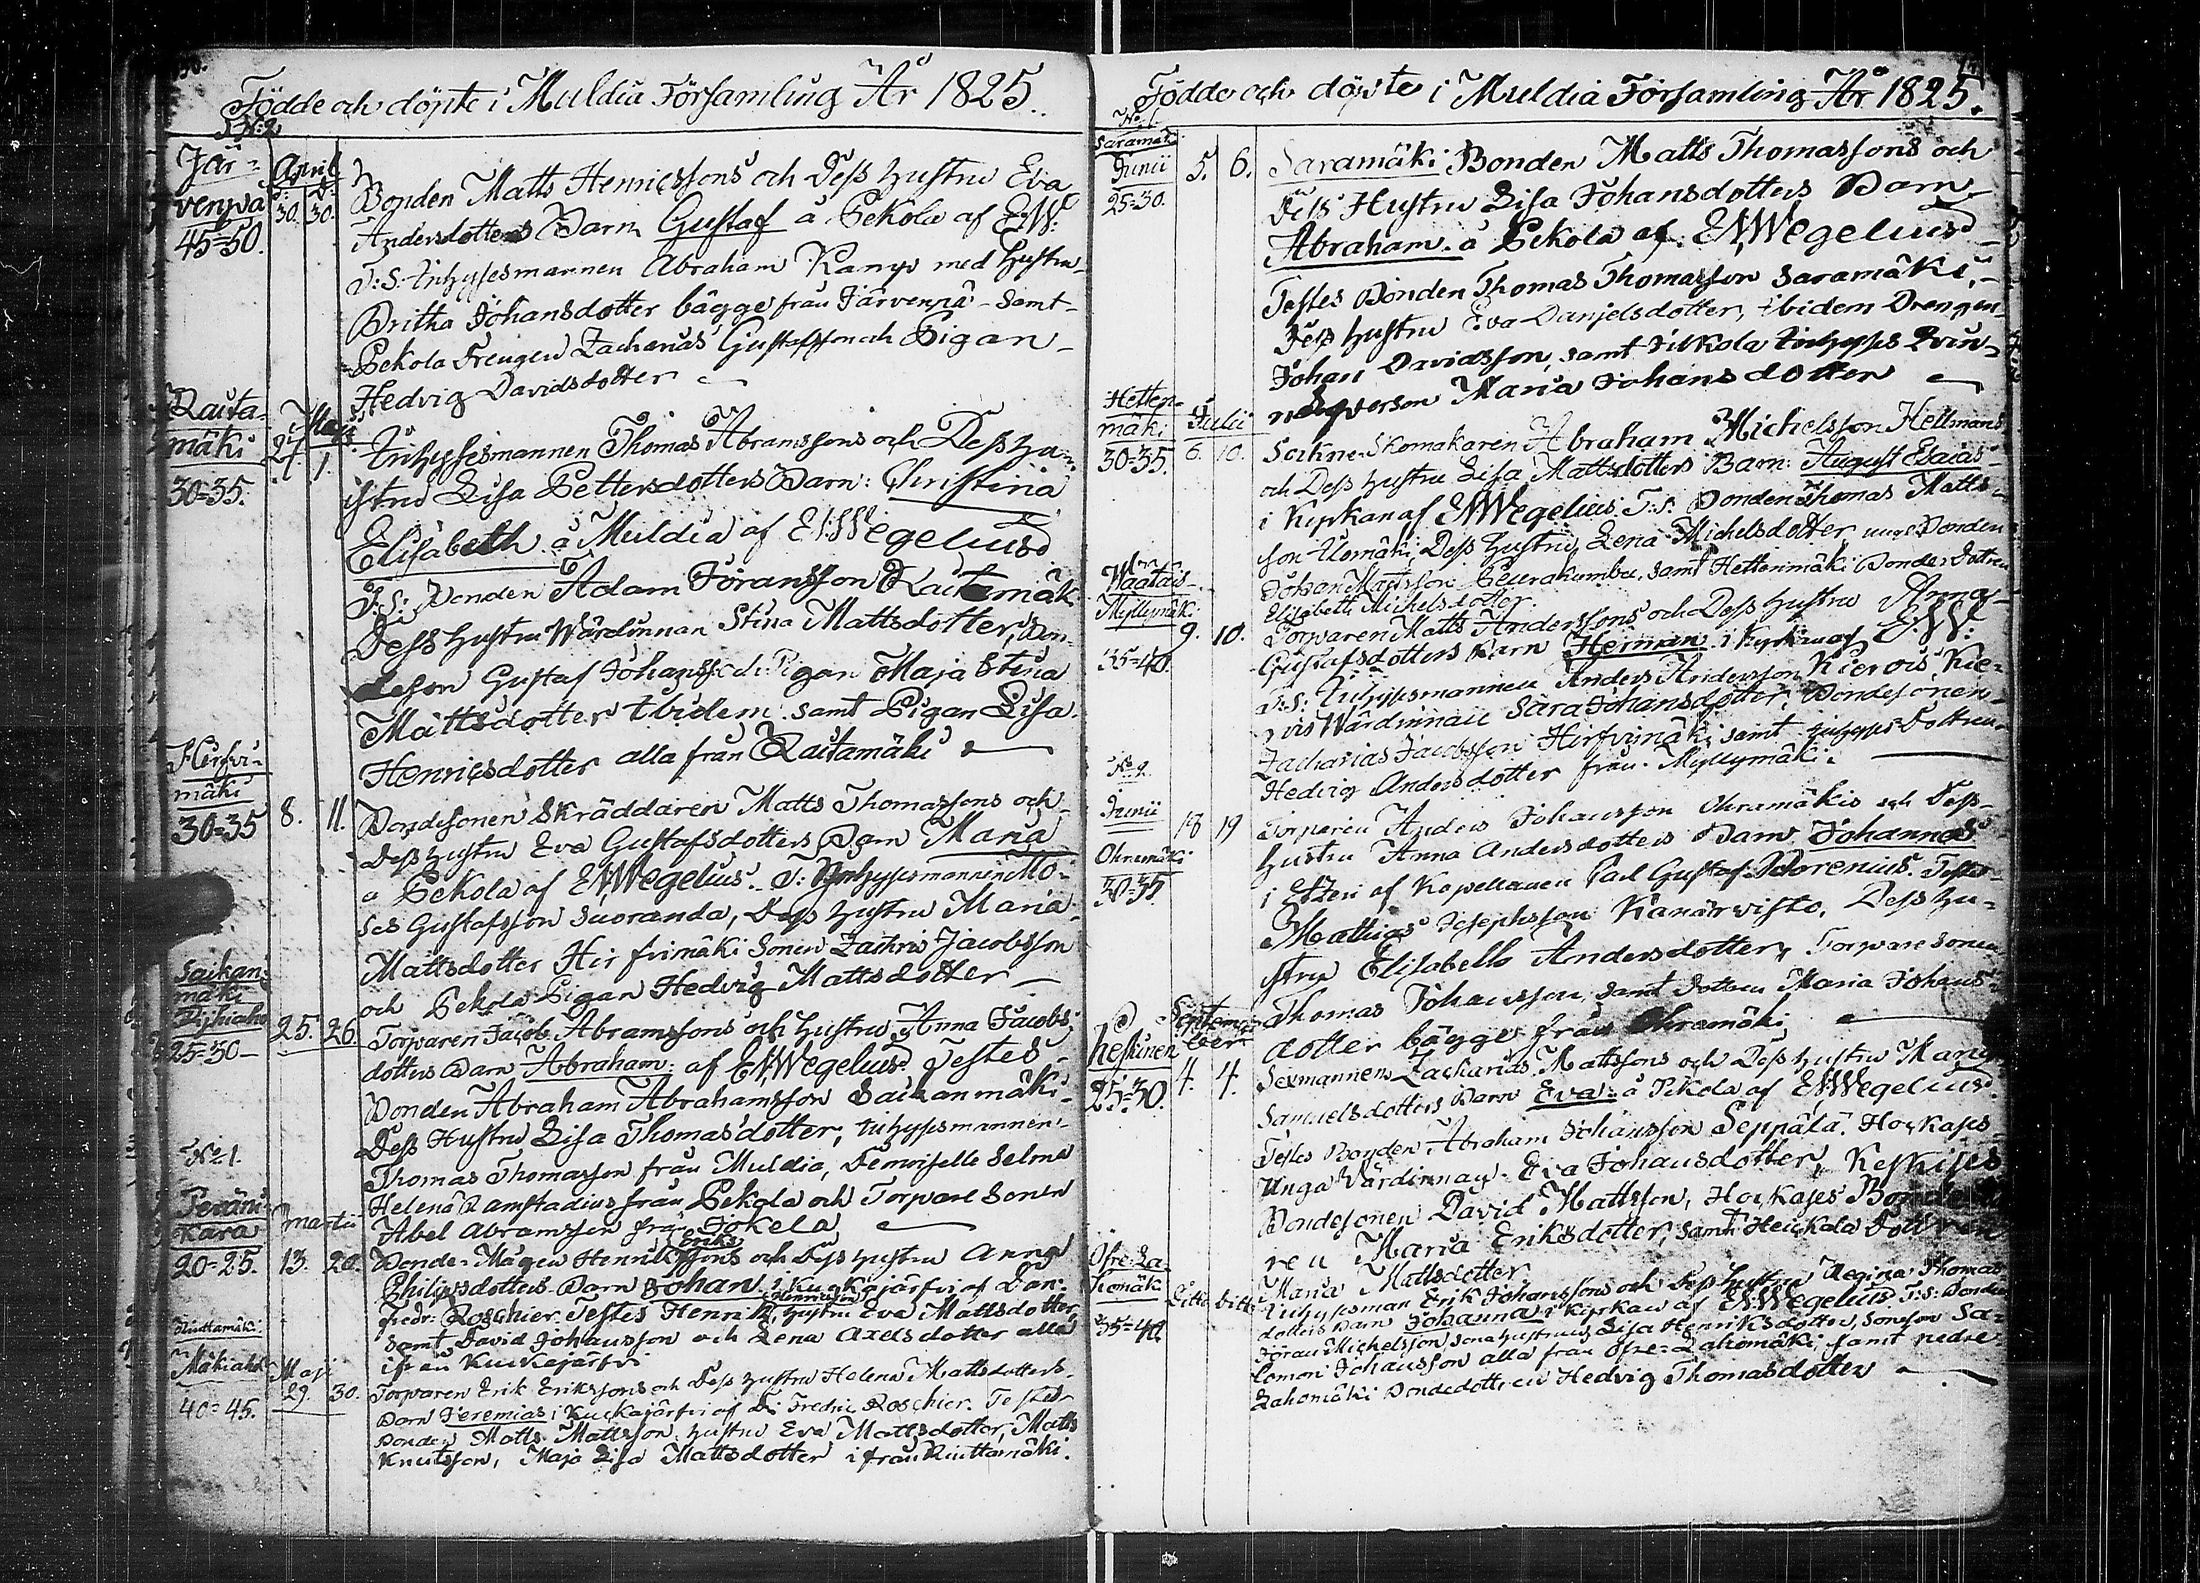 Födde och döpte i Muldia Församling År 1825.
N:2.
Jär=
venpä
45=50.
April
30. 30.
Bonden Matts Henricssons och Dess hustru Eva
Andersdotters Barn Gustaf å Pekola af EW:
T:S: Inhysesmannen Abraham Kamp med hustru
Britha Johansdotter bägge från Järvenpä - Samt
Pekola Drengen Zacharias Gustafsson och Pigan
Hedvig Davidsdotter
Rauta-
mäki
30=35.
Maji
27. 1.
Inhysesmannen Thomas Abramssons och Dess Hu-
stru Lisa Pettersdotters Barn: Christina
Elisabeth å Muldia af EWegelius
T:S: Bonden Adam Göransson Rautamäk
Dess hustru Wärdinnan Stina Mattsdotter, Bon-
desson Gustaf Johansson Pigan Maja Stina
Mattsdotter ibidem samt Pigan Lisa
Henricsdotter alla från Rautamäki
Hirfvi-
mäki
30=35
8. 11.
Bondesonen Skräddaren Matts Thomassons och
Dess hustru Eva Gustafsdotters Barn Maria
å Pekola af EWegelius. T: Inhysesmannen Mo-
ses Gustafsson Suoranda, Dess hustru Maria
Mattsdotter Hirfvimäki Sonen Zachris Jacobsson
och Pekola Pigan Hedvig Mattsdotter
Saikan-
mäki
25=30
25. 26.
Torparen Jacob Abramssons och hustru Anna Jacobs-
dotters Barn Abraham: af EWegelius. Testes
Bonden Abraham Abrahamsson Saikanmäki
Dess Hustru Lisa Thomasdotter, inhysesmannen
Thomas Thomasson från Muldia, Demoiselle Selma
Helena Ramstadius från Pekola och Torpare Sonen
Abel Abramsson från Jokela
N:1.
Peränu-
kara
20=25.
Martii
13. 20.
Eriks
Bonde Mågen Henrik Jöns och Dess hustru Anna
Philipsdotters Barn Johan i Kuckajärfvi af Dan:
Fredr: Roschier. Testes Henrik Henriksson, hustru Eva Mattsdotter,
samt David Johansson och Lena Axelsdotter alla
ifrån Kuckajärfvi
Riuttamäki
Mäkiaho
40=45.
Maji
29. 30.
Torparen Erik Erikssons och Dess hustru Helena Mattsdotters
Barn Jeremias i Kuckajärfvi af D: Fredric Roschier. Testes
Bonden Matts Mattsson, hustru Eva Mattsdotter, Matts
Knutsson, Maja Lisa Mattsdotter ifrån Riuttamäki.
Födde och döpte i Muldia Församling År 1825.
N:1.
Saramäk
Junii
25=30.
5. 6.
Saramäki Bonden Matts Thomassons och
Dess Hustru Lisa Johansdotters Barn
Abraham. å Pekola af. EWegelius
Testes Bonden Thomas Thomasson Saramäki,
Dess hustru Eva Danjelsdotter, ibidem Drengen
Johan Davidsson, samt Jukola inhyses Qvin-
nosperson Maria Johansdotter
Hetten-
mäki
30=35.
Julii
6. 10.
Sockne Skomakaren Abraham Michelsson Hellmans
och Dess hustru Lisa Mattsdotters Barn: August Esaias
i Kyrkan af EWegelius. T:S: Bonden Thomas Matts-
son Uomäki, Dess hustru Lena Michelsdotter unge Bonden
Johan Mattsson Peurakumbu, samt Hettenmäki Bonde Dottren
Elisabeth Michelsdotter.
Waatais
Myllymäki
35=40.
9. 10.
Torparen Matts Anderssons och Dess hustru Anna
Gustafsdotters Barn Herman i Kyrkan af EW:
T:S: Inhysesmannen Anders Andersson Kierois, Kie-
rois Wärdinnan Sara Johansdotter, Bondesonen
Zacharias Jacobsson Hirfvimäki samt inhyses Dottren
Hedvig Andersdotter från Myllymäki.
N:2.
Junii
Ohramäki
30=35
18 19
Torparen Anders Johansson Ohramäkis och Dess
hustru Anna Andersdotters Barn Johannes
i Etzeri af Kapellanen Carl Gustaf Dorenius. Testes
Mathias Josephsson Kanarvisto. Dess hu-
stru Elisabeth Andersdotter, Torpare sonen
Thomas Johansson, samt Dottren Maria Johans-
dotter bägge från Ohramäki
Keskinen
25=30.
Septem-
ber
4. 4.
Sexmannens Zacharias Mattsons och Dess hustru Maria
Samuelsdotters Barn Eva: å Pekola af EWegelius.
Testes Bonden Abraham Johansson Seppälä. Hockajes
Unga Värdinnan Eva Johansdotter, Keskises
Bondesonen David Mattsson, Hockajes Bonde
Maria Eriksdotter, samt Heickala Dottren
Maria Mattsdotter.
Öfre-La-
homäki
35=40
Ditto Ditto
Inhysesman Erik Johanssons och Dess hustru Regina Thomas
dotters Barn Johanna i Kyrkan af EWegelius. T:S: Bonden
Göran Michelsson, Sonehustrun Lisa Henriksdotter, Sonson Sa-
lomon Johansson alla från Öfre-Lahomäki, samt nedre
Lahomäki Bondedottren Hedvig Thomasdotter